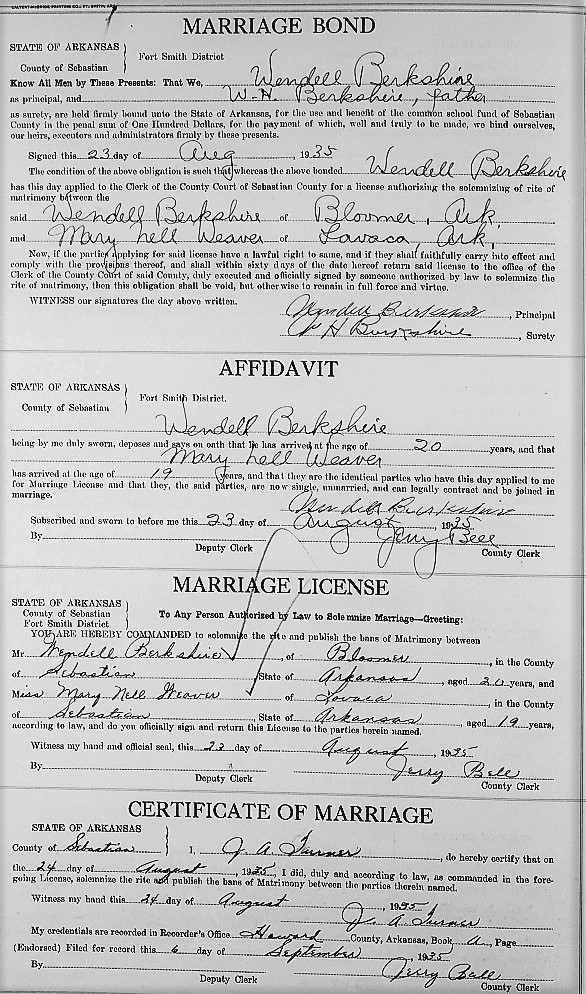 CALVERT-McBRIDE PRINTING CO., FT. SMITH, ARK.
MARRIAGE BOND
STATE OF ARKANSAS
County of Sebastian
Fort Smith District
Know All Men by These Presents: That We, Wendell Berkshire
as principal, and W. H. Berkshire, father
as surety, are held firmly bound unto the State of Arkansas, for the use and benefit of the common school fund of Sebastian
County in the penal sum of One Hundred Dollars, for the payment of which, well and truly to be made, we bind ourselves,
our heirs, executors and administrators firmly by these presents.
Signed this 23 day of Aug, 1935
The condition of the above obligation is such that whereas the above bonded Wendell Berkshire
has this day applied to the Clerk of the County Court of Sebastian County for a license authorizing the solemnizing of rite of
matrimony between the
said Wendell Berkshire of Bloomer, Ark.
and Mary Nell Weaver of Lavaca, Ark.
Now, if the parties applying for said license have a lawful right to same, and if they shall faithfully carry into effect and
comply with the provisions thereof, and shall within sixty days of the date hereof return said license to the office of the
Clerk of the County Court of said County, duly executed and officially signed by someone authorized by law to solemnize the
rite of matrimony, then this obligation shall be void, but otherwise to remain in full force and virtue.
WITNESS our signatures the day above written.
Wendell Berkshire, Principal
W H Berkshire, Surety
AFFIDAVIT
STATE OF ARKANSAS
County of Sebastian
Fort Smith District.
Wendell Berkshire
being by me duly sworn, deposes and says on oath that he has arrived at the age of 20 years, and that
Mary Nell Weaver
has arrived at the age of 19 years, and that they are the identical parties who have this day applied to me
for Marriage License and that they, the said parties, are now single, unmarried, and can legally contract and be joined in
marriage.
Wendell Berkshire
Subscribed and sworn to before me this 23 day of August, 1935
By Jerry Bell
Deputy Clerk County Clerk
MARRIAGE LICENSE
STATE OF ARKANSAS
County of Sebastian
Fort Smith District
To Any Person Authorized by Law to Solemnize Marriage—Greeting:
YOU ARE HEREBY COMMANDED to solemnize the rite and publish the bans of Matrimony between
Mr. Wendell Berkshire, of Bloomer, in the County
of Sebastian, State of Arkansas, aged 20 years, and
Miss Mary Nell Weaver of Lavaca, in the County
of Sebastian, State of Arkansas, aged 19 years,
according to law, and do you officially sign and return this License to the parties herein named.
Witness my hand and official seal, this 23 day of August, 1935
By Jerry Bell
Deputy Clerk County Clerk
CERTIFICATE OF MARRIAGE
STATE OF ARKANSAS
County of Sebastian I, J. A. Turner, do hereby certify that on
the 24 day of August, 1935, I did, duly and according to law, as commanded in the fore-
going License, solemnize the rite and publish the bans of Matrimony between the parties therein named.
Witness my hand this 24 day of August, 1935
J. A. Turner
My credentials are recorded in Recorder's Office Howard County, Arkansas, Book A, Page
(Endorsed) Filed for record this 6 day of September, 1935
By Jerry Bell
Deputy Clerk County Clerk